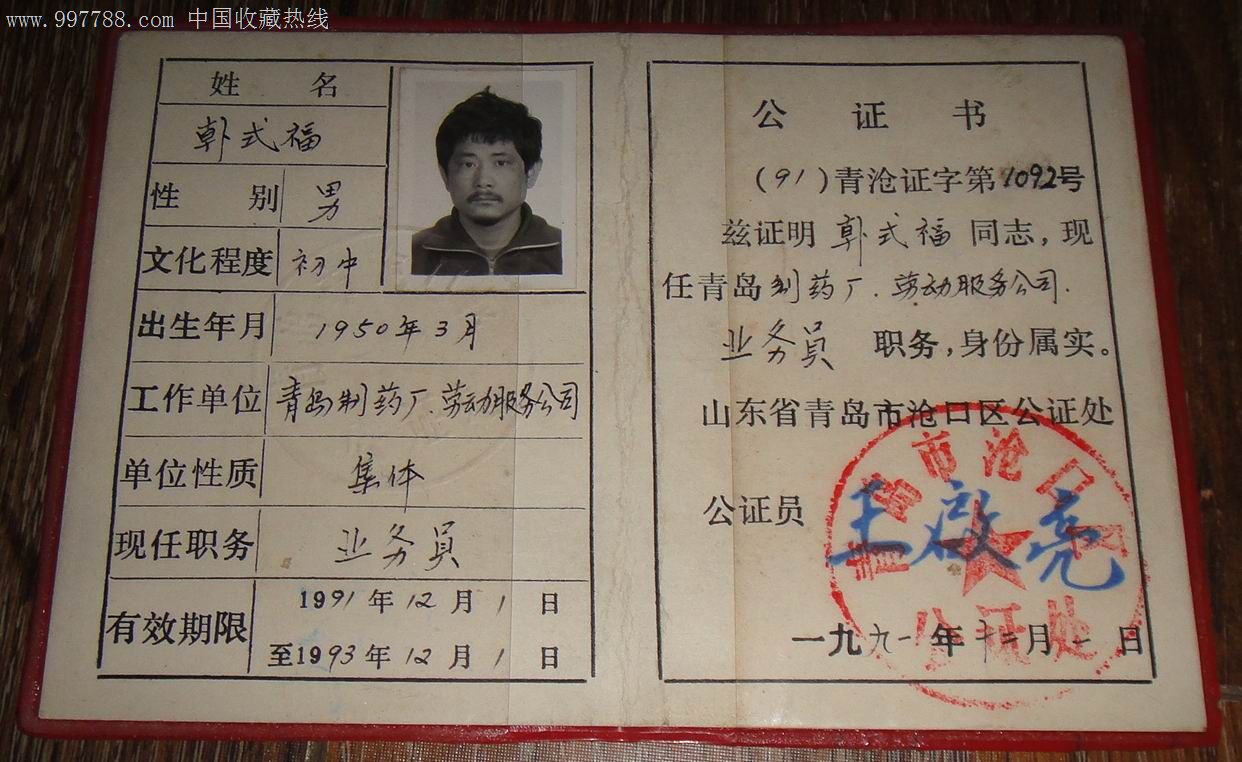 www.997788.com 中国收藏热线
姓 名
韩式福
性 别 男
文化程度 初中
出生年月 1950年3月
工作单位 青岛制药厂.劳动服务公司
单位性质 集体
现任职务 业务员
有效期限 1991年12月1日
至1993年12月1日
公证书
(91)青沧证字第1092号
兹证明 韩式福 同志,现
任青岛制药厂.劳动服务公司.
业务员 职务,身份属实。
山东省青岛市沧口区公证处
公证员 王启亮
一九九一年十二月一日
青岛市沧口区
公证处